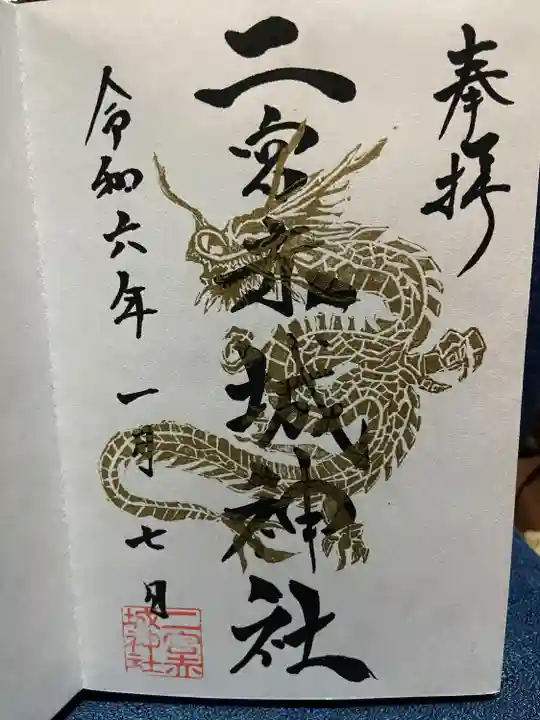 奉拝
二宮赤城神社
令和六年
一月七日
二宮赤
城神社